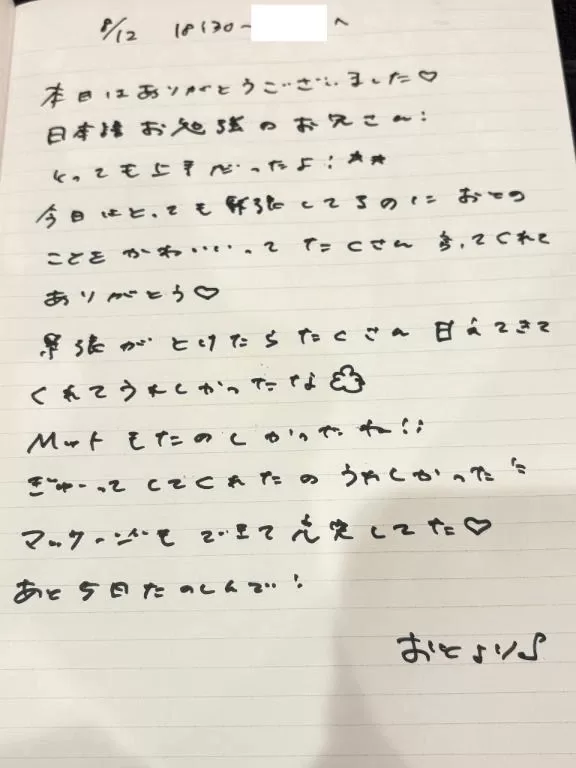 8/12 18:30〜 へ
本日はありがとうございました♡
日本語お勉強のお兄さん!
とっても上手だったよ!★★
今日はとっても緊張してるのに おとの
ことを かわいいって たくさん 言ってくれて
ありがとう♡
緊張が とけたら たくさん 甘えてきて
くれて うれしかったな
Mットも たのしかったね!!
ぎゅーって してくれたの うれしかった
も できて 充実してた♡
あと 5日 たのしんで!
おとより♪